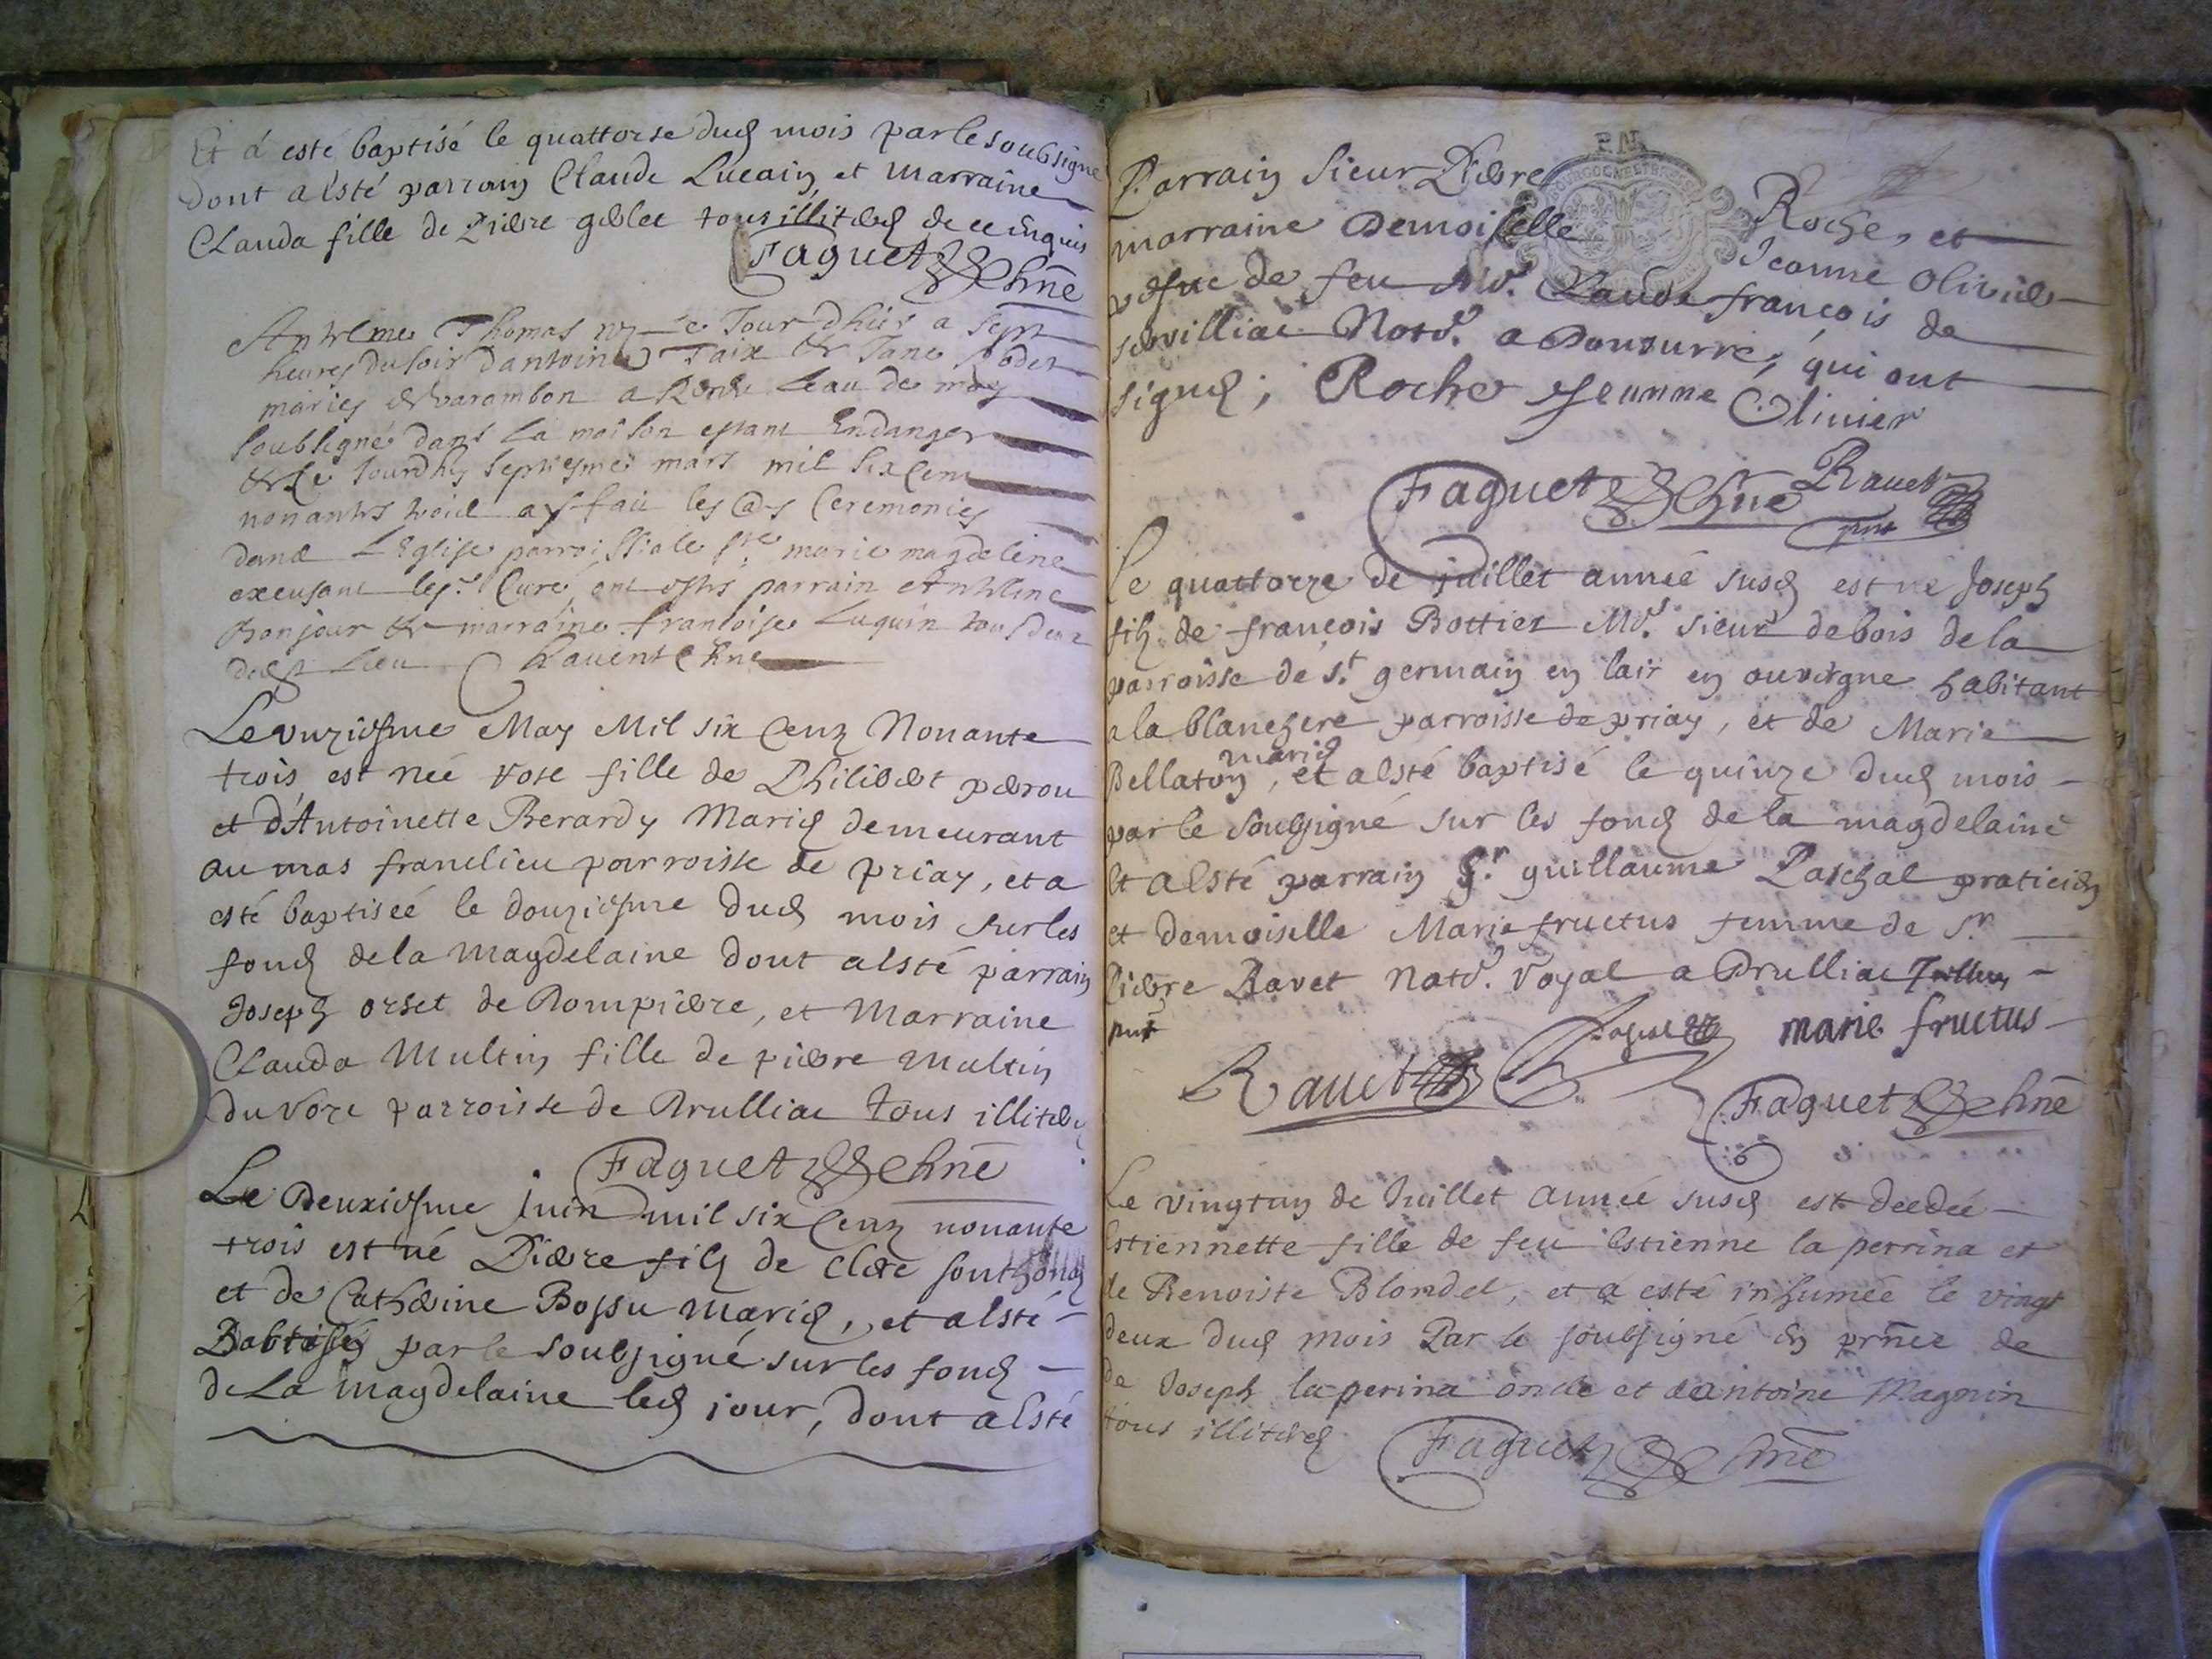 Et a esté baptisé le quattorse dud mois par le soubsigné
dont a esté parrain Claude Lucain et marraine
Clauda fille de Pierre gerlet tous illiterés de ce enquis
Faguet chne
Anthelme Thomas né le Jour dhier a sept
heures du soir dantoine Taix & Jane
mariés de varambon a Receu Leau de moy
soubsigné dans la maison estant En danger
& Le Jourdhuy septiesme mars mil six cent
nonante trois ay fait les Ceremonies
dans L'Eglise parroissiale ste marie magdeleine
excusant le sr Curé ont estés parrain Anthelme
Bonjour & marraine francoise Luquin tous deux
dud Lieu Ravent chne
Le unziesme May Mil six Cens Nonante
trois est neé rose fille de Philibert perrou
et d'Antoinette Berardy Mariés demeurant
au mas franclieu parroisse de priay, et a
esté baptiseé le douziesme dud mois sur les
fonds de la Magdelaine dont a esté parrain
Joseph orset de Dompierre, et Marraine
Clauda Multin fille de pierre Multin
du vore parroisse de Drulliac tous illiterés
Faguet chne
Le Deuxiesme Juin mil six Cens nonante
trois est né Pierre fils de Clere southonax
et de Catherine Bossu Mariés, et a esté
Babtisé par le soubsigné sur les fonds
de La Magdelaine led jour, dont a esté
Parrain Sieur Pierre Roche, et
marraine Demoiselle Jeanne Olivier
vesue de feu Mr. Claude françois de
servilliac Notr. a Donsurre, qui ont
signés; Roche Jeanne Olinier
Faguet chne Rauet
pnt
Le quattorze de juillet anneé susd est né Joseph
fils de françois Bottier Mr. sieur de bois de la
parroisse de st germain en lair en auvergne habitant
a la blanchere parroisse de priay, et de Marie
Bellaton mariés, et a esté baptisé le quinze dud mois
par le soubsigné sur les fonds de la magdelaine
et a esté parrain Sr. guillaume Paschal praticien
et demoiselle Marie fructus femme de Sr
Pierre Ravet notr. royal a Drulliac
pnt
Rauet Pascal marie fructus
Faguet chne
Le vingt un de Juillet anneé susd est decedeé
Estiennette fille de feu Estienne la perrina et
de Benoiste Blondel, et a esté inhumeé le vingt
deux dud mois Par le soubsigné en prnce de
de Joseph la perina oncle et dantoine Magnin
tous illiterés
Faguet chne